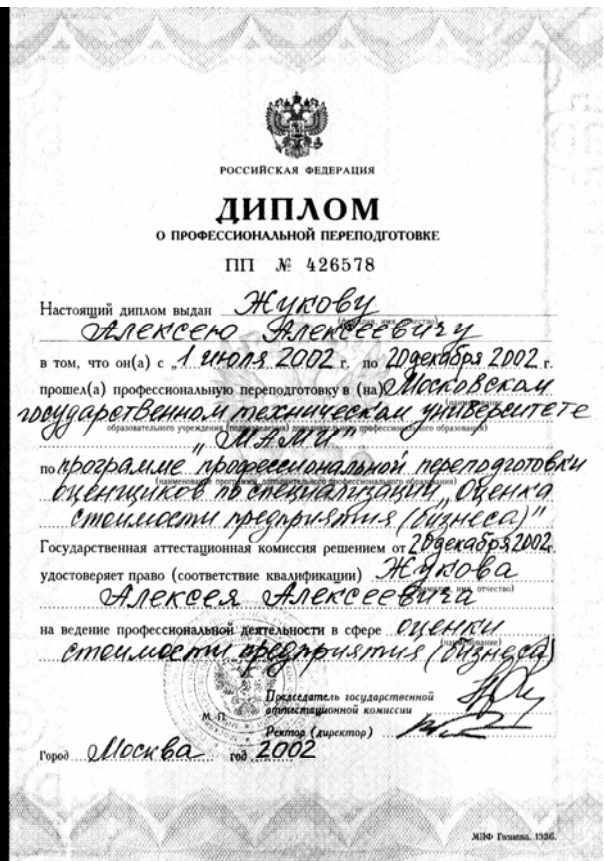 РОССИЙСКАЯ ФЕДЕРАЦИЯ
ДИПЛОМ
О ПРОФЕССИОНАЛЬНОЙ ПЕРЕПОДГОТОВКЕ
ПП № 426578
Настоящий диплом выдан Жукову
(фамилия, имя, отчество)
Алексею Алексеевичу
в том, что он(а) с „1 июля 2002 г. по 20 декабря 2002 г.
прошел(а) профессиональную переподготовку в (на) Московском
(наименование
государственном техническом университете
образовательного учреждения (подразделения) дополнительного профессионального образования)
„МАМИ"
по программе профессиональной переподготовки
(наименование программы дополнительного профессионального образования)
оценщиков по специализации „Оценка
стоимости предприятия (бизнеса)"
Государственная аттестационная комиссия решением от 20 декабря 2002г.
удостоверяет право (соответствие квалификации) Жукова
(фамилия, имя, отчество)
Алексея Алексеевича
на ведение профессиональной деятельности в сфере оценки
(наименование)
стоимости предприятия (бизнеса)
Председатель государственной
аттестационной комиссии
М. П.
Ректор (директор)
Город Москва год 2002
МПФ Гознака. 1996.